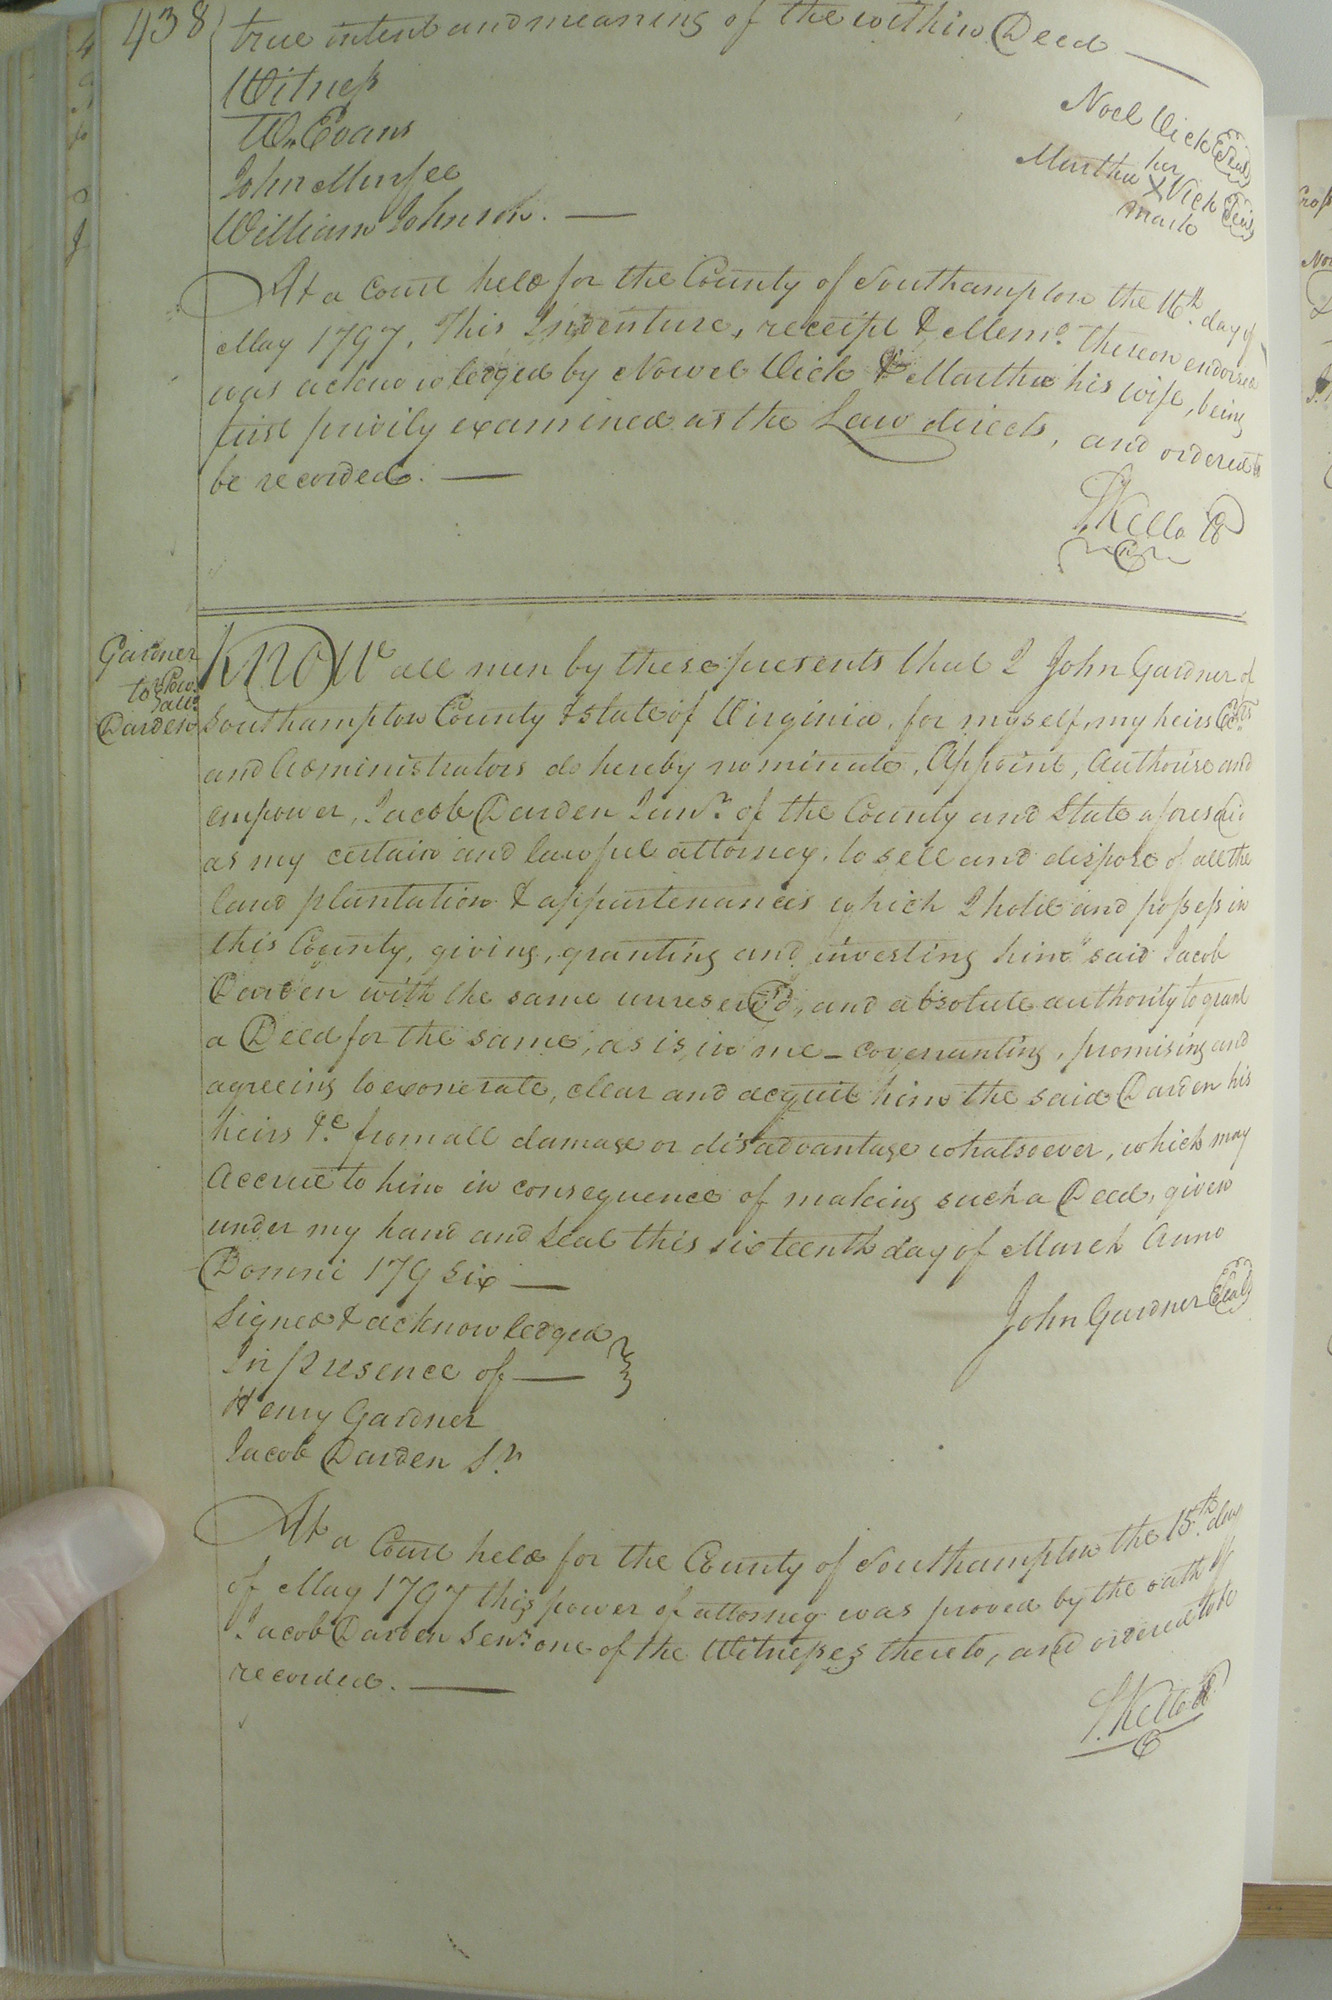 438
true intent and meaning of the within Deed —
Witness
Wm Evans
John Murfee
William Johnson. —
Noel Vick Seal
her
Martha X Vick Seal
mark
At a Court held for the County of Southampton the 16th. day of
May 1797, This Indenture, receipt & Memo. thereon endorsed
was acknowledged by Nowel Vick & Martha his wife, being
first privily examined as the Law directs, and ordered to
be recorded. —
S. Kello
Gardner
to
Darden
Know all men by these presents that I John Gardner of
Southampton County & State of Virginia, for myself, my heirs Exrs.
and Administrators do hereby nominate, Appoint, Authorise and
empower, Jacob Darden Junr. of the County and State aforesaid
as my certain and lawful attorney, to sell and dispose of all the
land plantation & appurtenances which I hold and possess in
this County, giving, granting and investing him said Jacob
Darden with the same unreserv'd, and absolute authority to grant
a Deed for the same, as is in me — covenanting, promising and
agreeing to exonerate, clear and acquit him the said Darden his
heirs &c. from all damage or disadvantage whatsoever, which may
Accrue to him in consequence of making such a Deed, given
under my hand and seal this sixteenth day of March Anno
Domini 179 Six —
John Gardner Seal
Signed & acknowledged
In presence of —
Henry Gardner
Jacob Darden Sr
At a Court held for the County of Southampton the 15th. day
of May 1797 this power of attorney was proved by the oath of
Jacob Darden Senr. one of the Witnesses thereto, and ordered to be
recorded. —
S. Kello